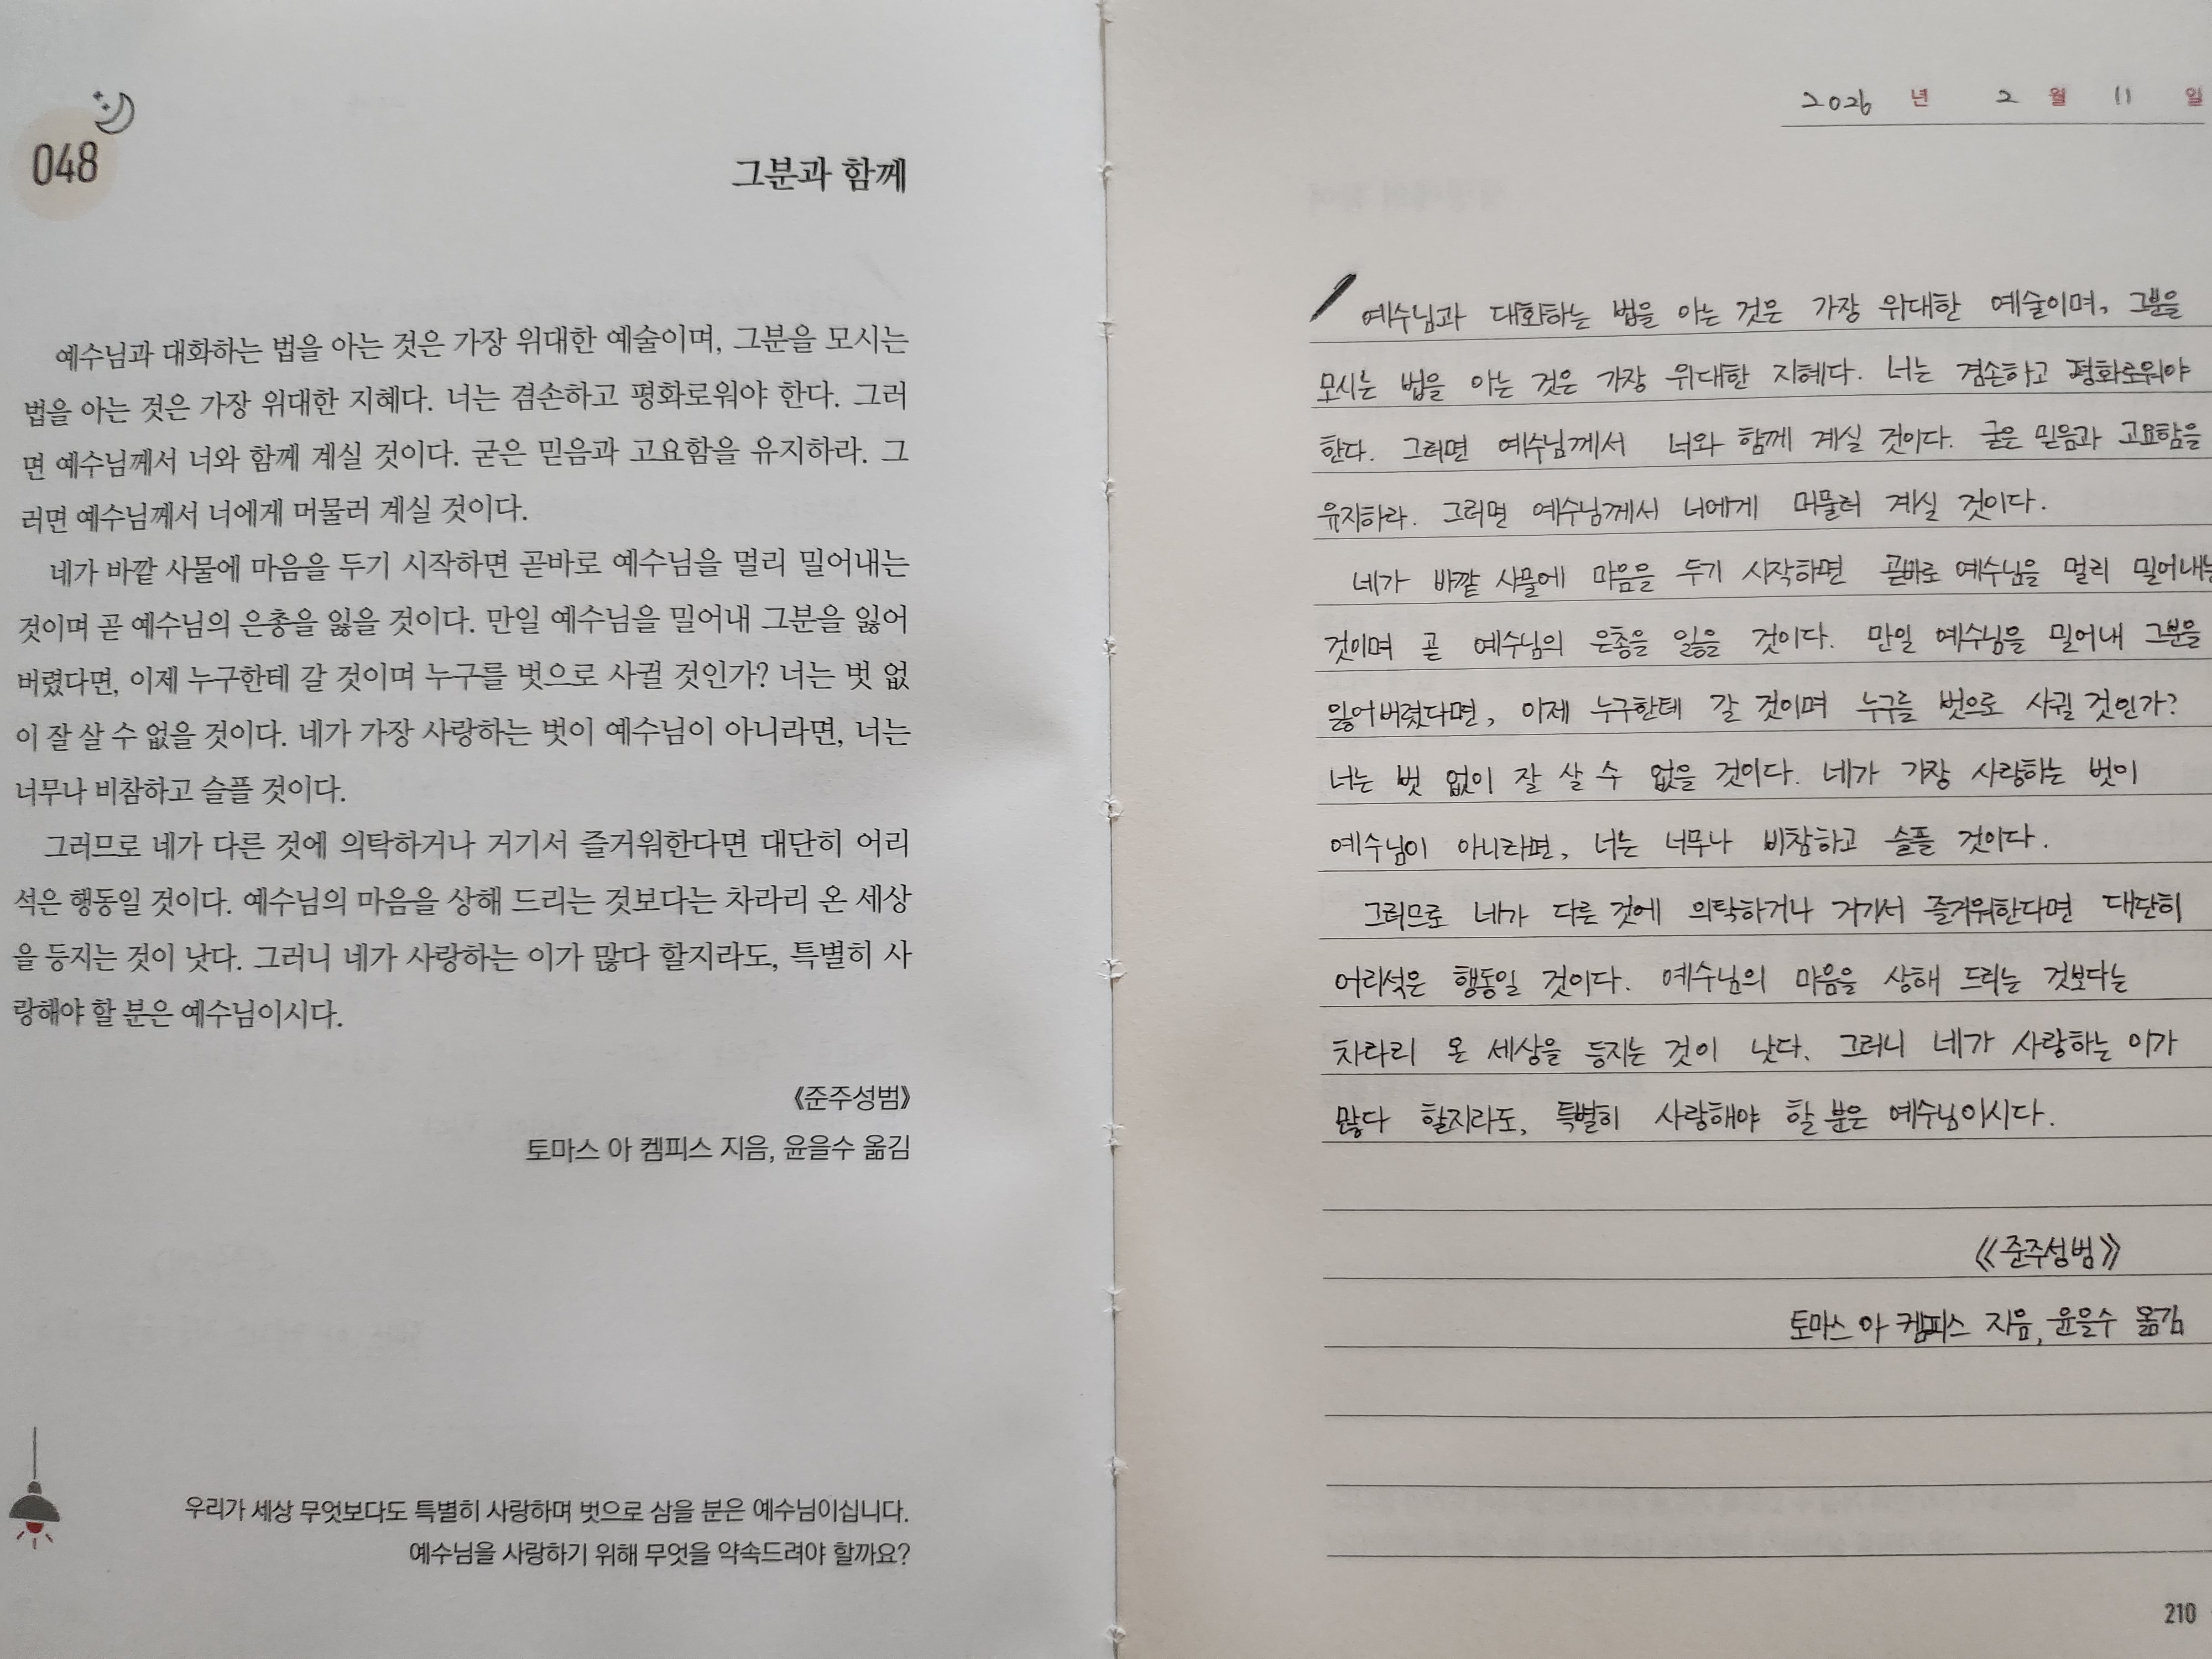 048
그분과 함께
예수님과 대화하는 법을 아는 것은 가장 위대한 예술이며, 그분을 모시는
법을 아는 것은 가장 위대한 지혜다. 너는 겸손하고 평화로워야 한다. 그러
면 예수님께서 너와 함께 계실 것이다. 굳은 믿음과 고요함을 유지하라. 그
러면 예수님께서 너에게 머물러 계실 것이다.
네가 바깥 사물에 마음을 두기 시작하면 곧바로 예수님을 멀리 밀어내는
것이며 곧 예수님의 은총을 잃을 것이다. 만일 예수님을 밀어내 그분을 잃어
버렸다면, 이제 누구한테 갈 것이며 누구를 벗으로 사귈 것인가? 너는 벗 없
이 잘 살 수 없을 것이다. 네가 가장 사랑하는 벗이 예수님이 아니라면, 너는
너무나 비참하고 슬플 것이다.
그러므로 네가 다른 것에 의탁하거나 거기서 즐거워한다면 대단히 어리
석은 행동일 것이다. 예수님의 마음을 상해 드리는 것보다는 차라리 온 세상
을 등지는 것이 낫다. 그러니 네가 사랑하는 이가 많다 할지라도, 특별히 사
랑해야 할 분은 예수님이시다.
《준주성범》
토마스 아 켐피스 지음, 윤을수 옮김
우리가 세상 무엇보다도 특별히 사랑하며 벗으로 삼을 분은 예수님이십니다.
예수님을 사랑하기 위해 무엇을 약속드려야 할까요?
2026 년 2 월 11 일
예수님과 대화하는 법을 아는 것은 가장 위대한 예술이며, 그분을
모시는 법을 아는 것은 가장 위대한 지혜다. 너는 겸손하고 평화로워야
한다. 그러면 예수님께서 너와 함께 계실 것이다. 굳은 믿음과 고요함을
유지하라. 그러면 예수님께서 너에게 머물러 계실 것이다.
네가 바깥 사물에 마음을 두기 시작하면 곧바로 예수님을 멀리 밀어내는
것이며 곧 예수님의 은총을 잃을 것이다. 만일 예수님을 밀어내 그분을
잃어버렸다면, 이제 누구한테 갈 것이며 누구를 벗으로 사귈 것인가?
너는 벗 없이 잘 살 수 없을 것이다. 네가 가장 사랑하는 벗이
예수님이 아니라면, 너는 너무나 비참하고 슬플 것이다.
그러므로 네가 다른 것에 의탁하거나 거기서 즐거워한다면 대단히
어리석은 행동일 것이다. 예수님의 마음을 상해 드리는 것보다는
차라리 온 세상을 등지는 것이 낫다. 그러니 네가 사랑하는 이가
많다 할지라도, 특별히 사랑해야 할 분은 예수님이시다.
《준주성범》
토마스 아 켐피스 지음, 윤을수 옮김
210